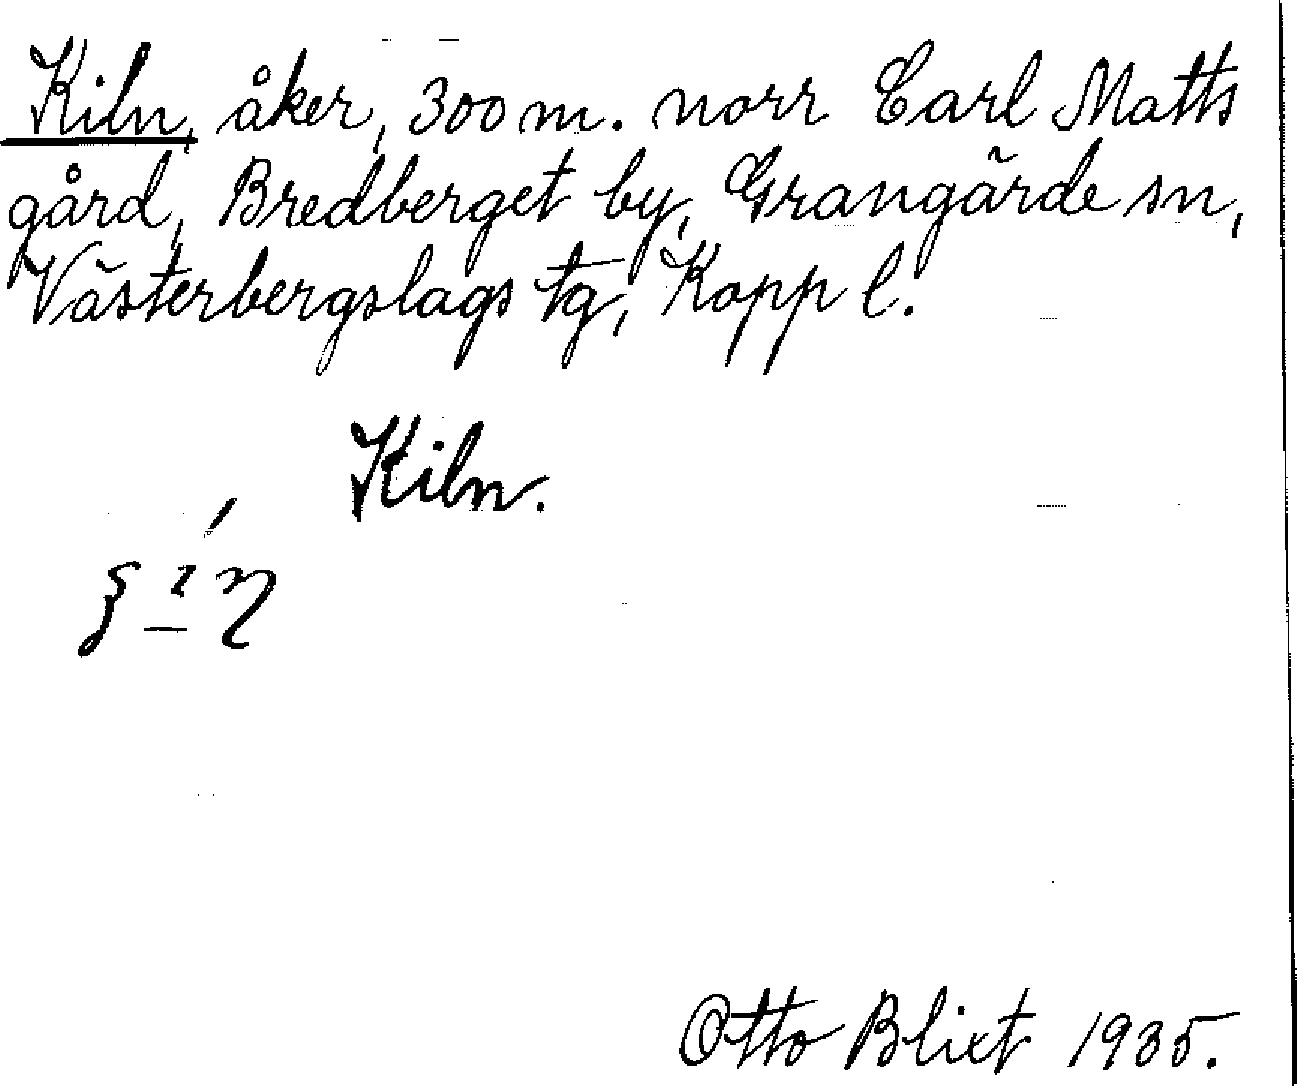 Kiln, åker, 300 m. norr Carl Matts
gård, Bredberget by, Grangärde sn,
Västerbergslags tg, Kopp l.
Kiln.
Otto Blixt 1935.